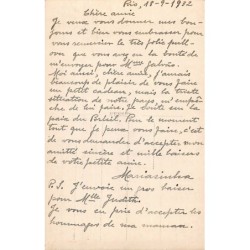 Rio, 18-9-1932
Chère amie
Je veux vous donner mes bon-
jours et bien vous embrasser pour
vous remercier les très jolis
que vous avez eu la bonté de
m'envoyer pour Mme
Moi aussi, chère amie, j'aurais
beaucoup de plaisir de vous faire
un petit cadeau, mais la triste
situation de notre pays, m'empê-
che de le faire, je suis sur la
paix du Brésil. Pour le moment
tout que je peux vous faire, c'est
de vous demander d'accepter mon
amitié sincère et mille baisers
de votre petite amie.
P.S. J'envoie un gros baiser
pour Mlle Judith.
Je vous en prie d'accepter les
hommages de ma maman.